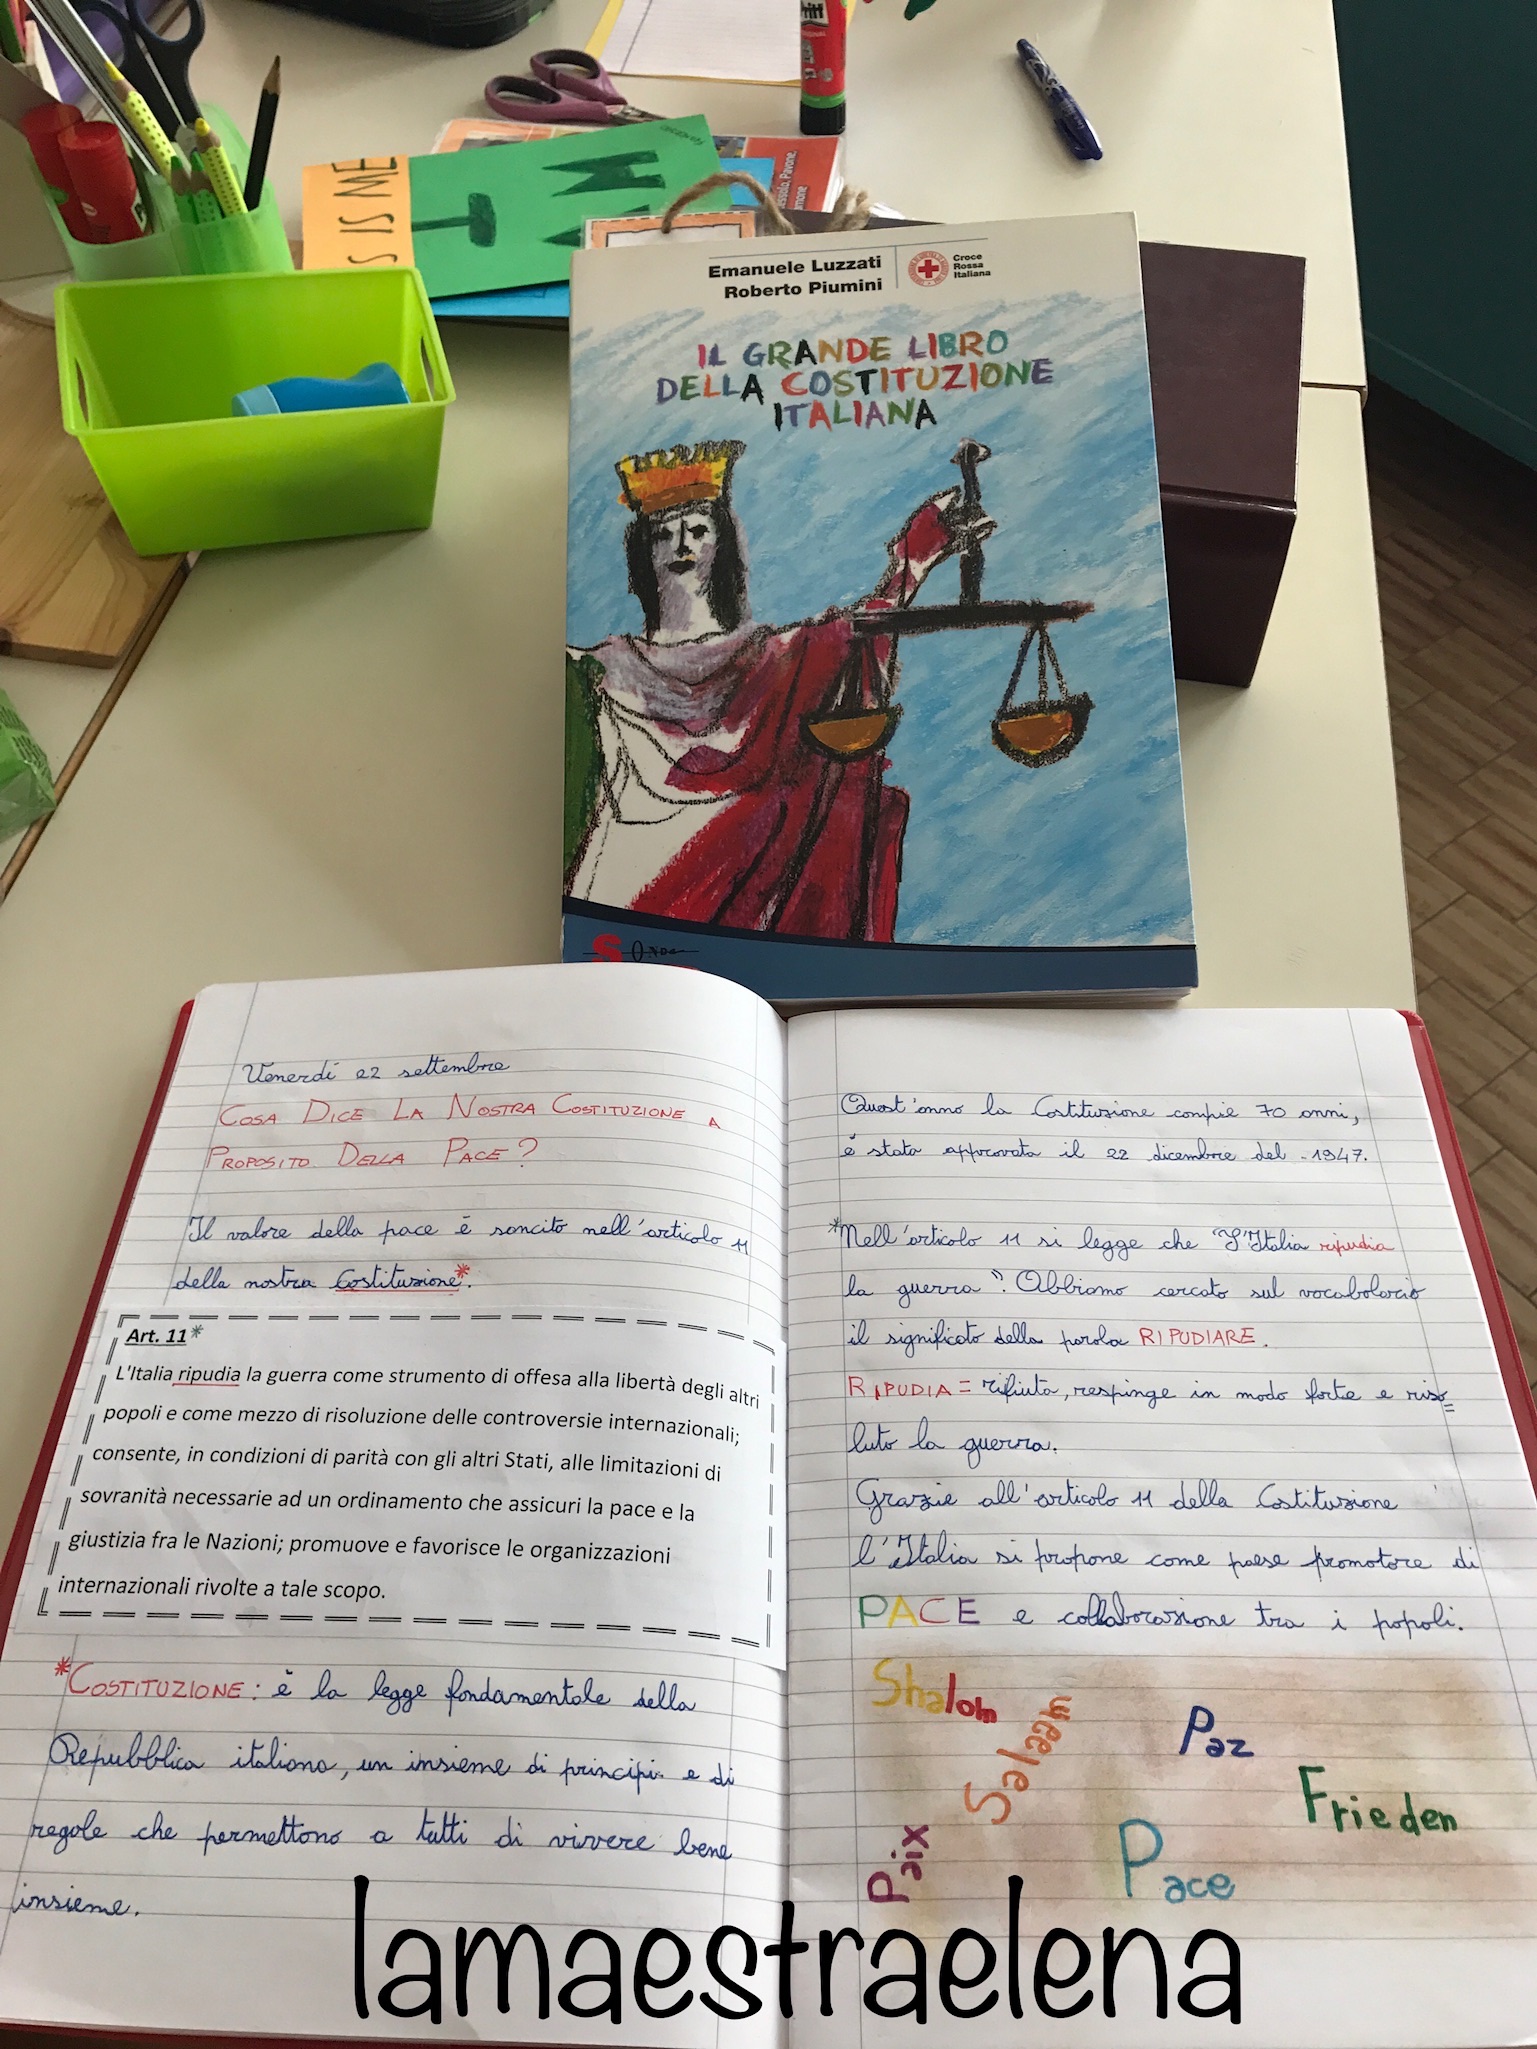 Pritt
ORIGINAL
S IS ME
essolo, Pavone,
Emanuele Luzzati
Roberto Piumini
Croce
Rossa
Italiana
IL GRANDE LIBRO
DELLA COSTITUZIONE
ITALIANA
SONDA
Venerdí 22 settembre
COSA DICE LA NOSTRA COSTITUZIONE A
PROPOSITO DELLA PACE?
Il valore della pace è sancito nell'articolo 11
della nostra Costituzione*.
Art. 11*
L'Italia ripudia la guerra come strumento di offesa alla libertà degli altri
popoli e come mezzo di risoluzione delle controversie internazionali;
consente, in condizioni di parità con gli altri Stati, alle limitazioni di
sovranità necessarie ad un ordinamento che assicuri la pace e la
giustizia fra le Nazioni; promuove e favorisce le organizzazioni
internazionali rivolte a tale scopo.
*COSTITUZIONE: è la legge fondamentale della
Repubblica italiana, un insieme di principi e di
regole che permettono a tutti di vivere bene
insieme.
Quest'anno la Costituzione compie 70 anni,
è stata approvata il 22 dicembre del 1947.
*Nell'articolo 11 si legge che "L'Italia ripudia
la guerra". Abbiamo cercato sul vocabolario
il significato della parola RIPUDIARE.
RIPUDIA = rifiuta, respinge in modo forte e riso=
luto la guerra.
Grazie all'articolo 11 della Costituzione
l'Italia si propone come paese promotore di
PACE e collaborazione tra i popoli.
Shalom
Salaam
Paz
Frieden
Paix
Pace
lamaestraelena